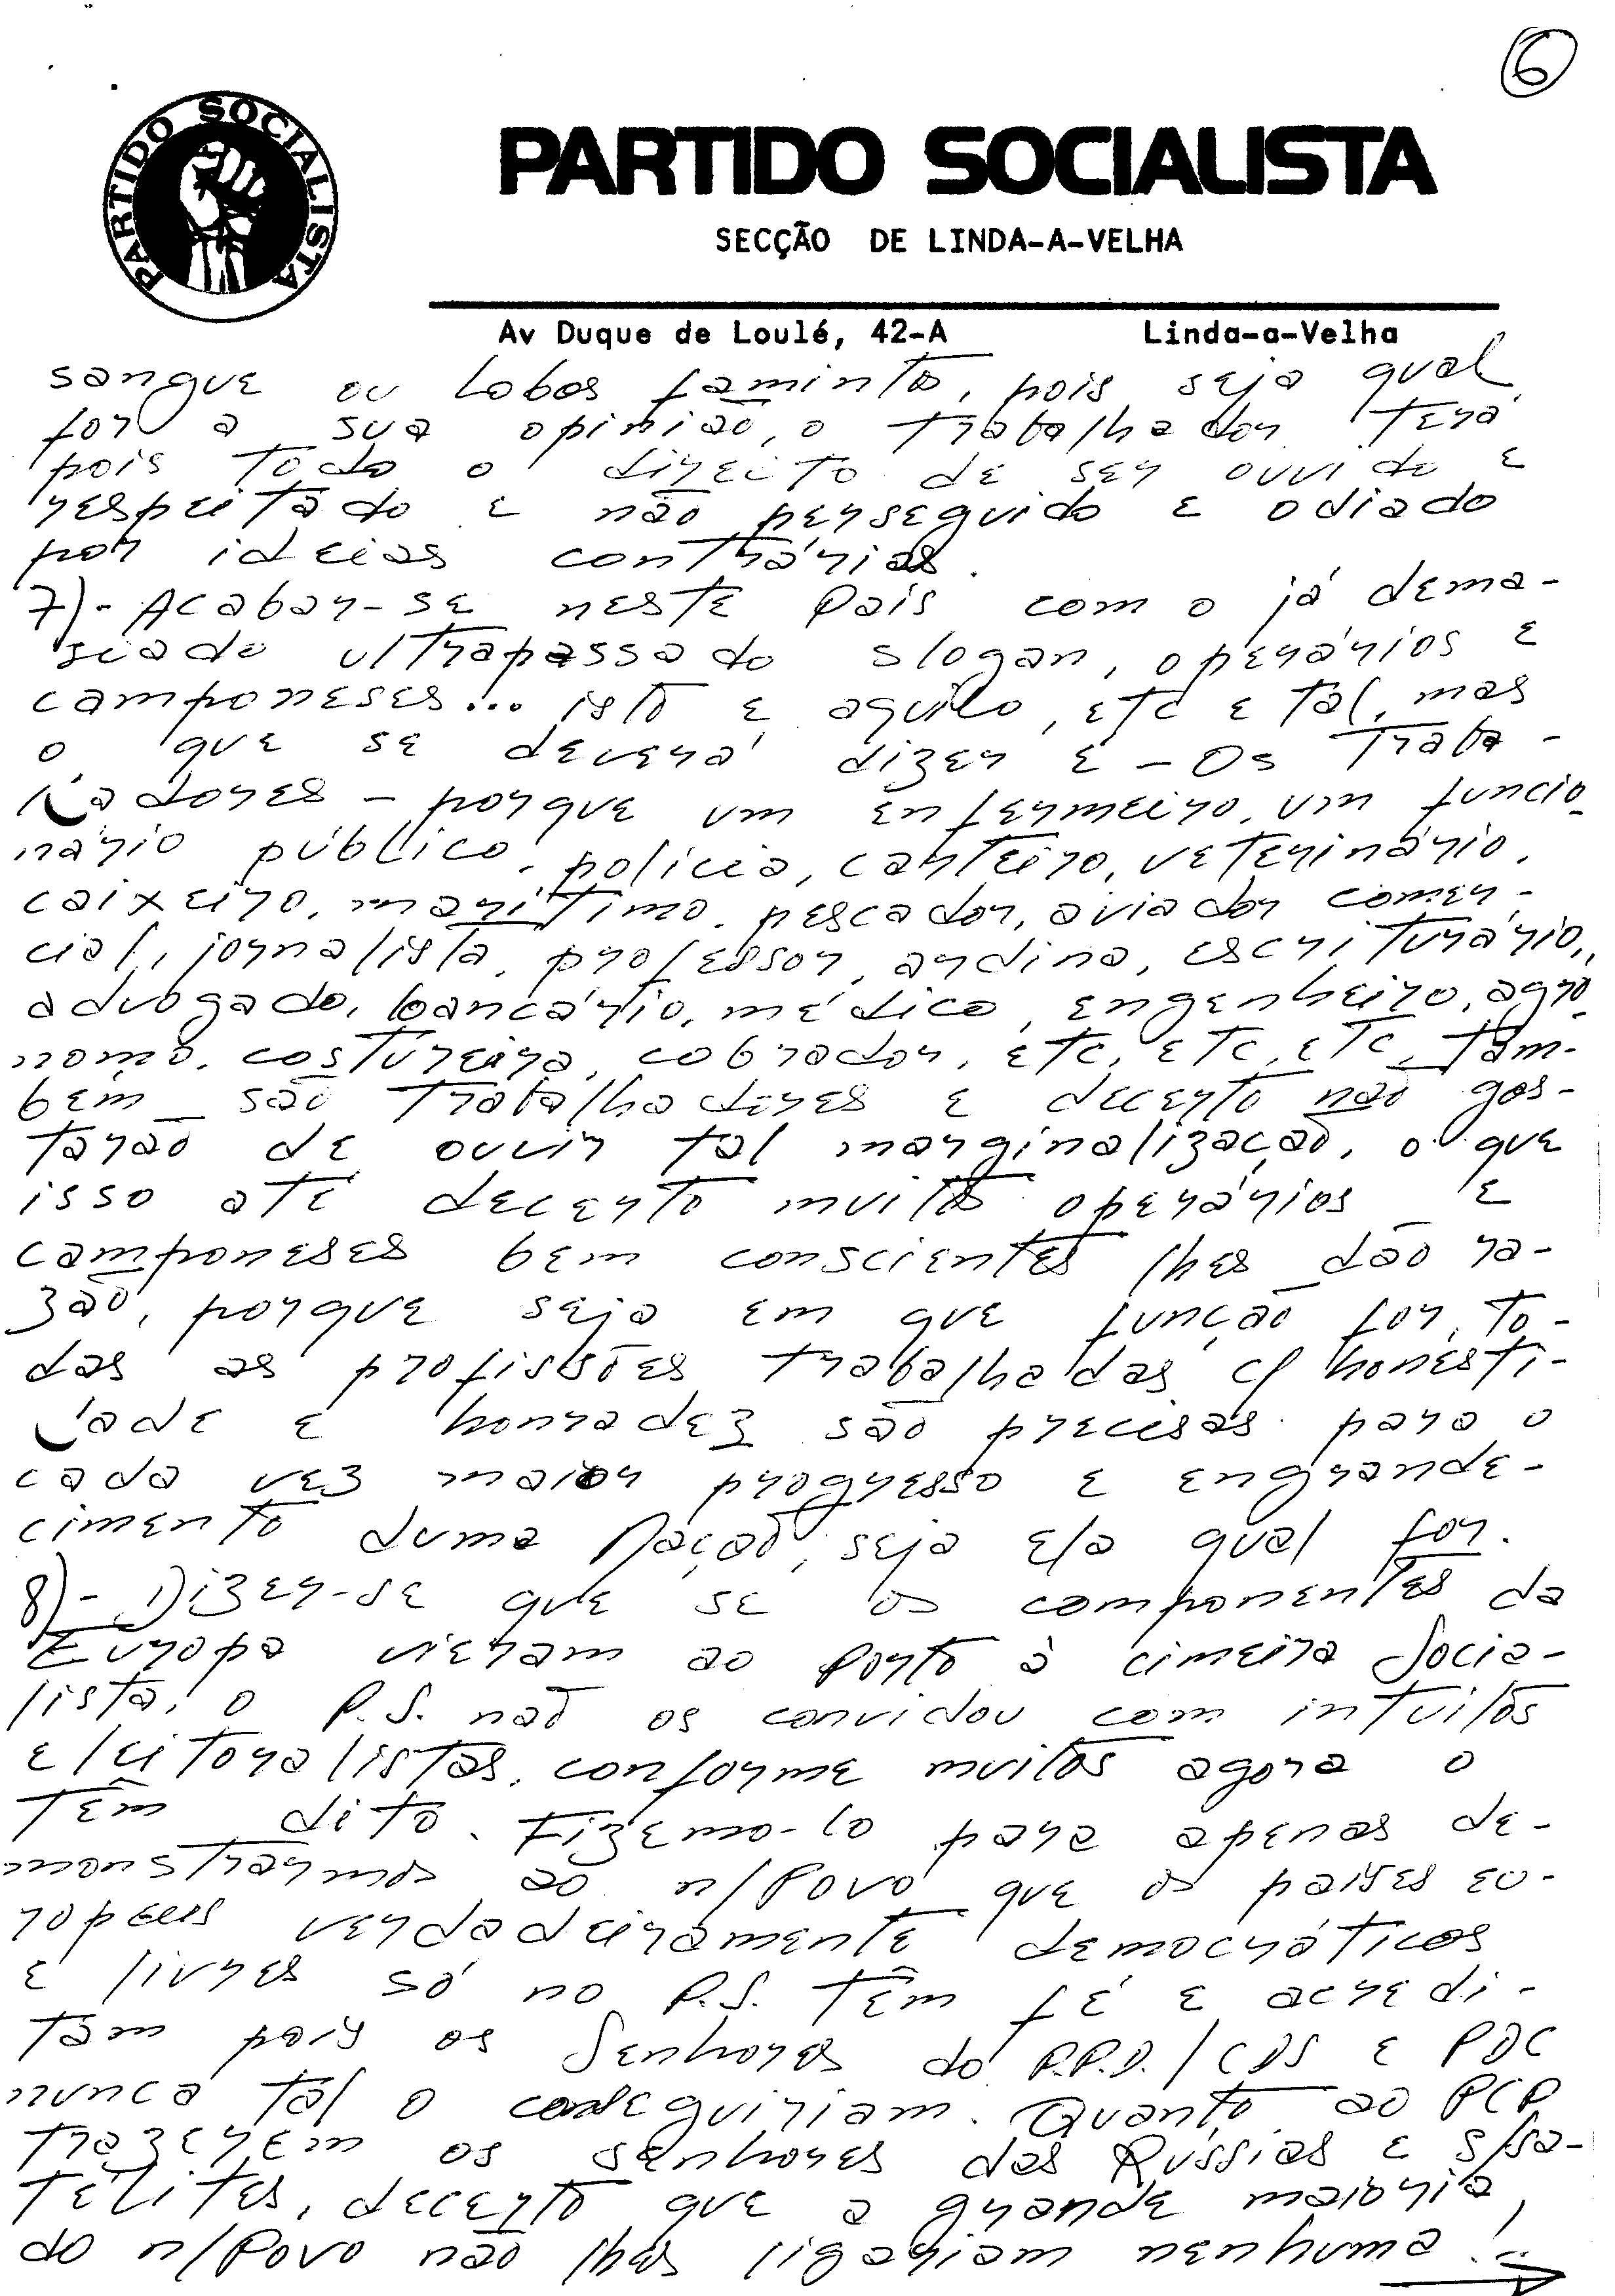 6
PARTIDO SOCIALISTA
PARTIDO SOCIALISTA
SECÇÃO DE LINDA-A-VELHA
Av Duque de Loulé, 42-A Linda-a-Velha
sangue ou Lobos famintos, pois seja qual
for a sua opinião, o trabalhador terá
pois todo o direito de ser ouvido e
respeitado e não perseguido e odiado
por ideias contrárias.
7)- Acabar-se neste País com o já dema-
siado ultrapassado slogan, operários e
camponeses... isto e aquilo, etc e tal, mas
o que se deverá dizer é - Os Traba-
lhadores - porque um enfermeiro, um funcio-
nário público, polícia, canteiro, veterinário,
caixeiro, marítimo, pescador, aviador comer-
cial, jornalista, professor, ardina, escriturário,,
advogado, bancário, médico, engenheiro, agró-
nomo, costureira, cobrador, etc, etc, etc, tam-
bém são trabalhadores e decerto não gos-
tarão de ouvir tal marginalização, o que
isso até decerto muitos operários e
camponeses bem conscientes lhes dão ra-
zão, porque seja em que função for, to-
das as profissões trabalhadas c/ honesti-
dade e honradez são precisas para o
cada vez maior progresso e engrande-
cimento duma Nação, seja ela qual for.
8)- Dizer-se que se os componentes da
Europa vieram ao Porto à cimeira Socia-
lista, o P.S. não os convidou com intuitos
eleitoralistas, conforme muitos agora o
têm dito. Fizemo-lo para apenas de-
monstrarmos ao n/Povo que os países eu-
ropeus verdadeiramente democráticos
e livres só no P.S. têm fé e acredi-
tam pois os Senhores do P.P.D./CDS e PDC
nunca tal o conseguiriam. Quanto ao PCP
trazerem os senhores das Rússias e s/sa-
télites, decerto que a grande maioria
do n/Povo não lhes ligariam nenhuma!..